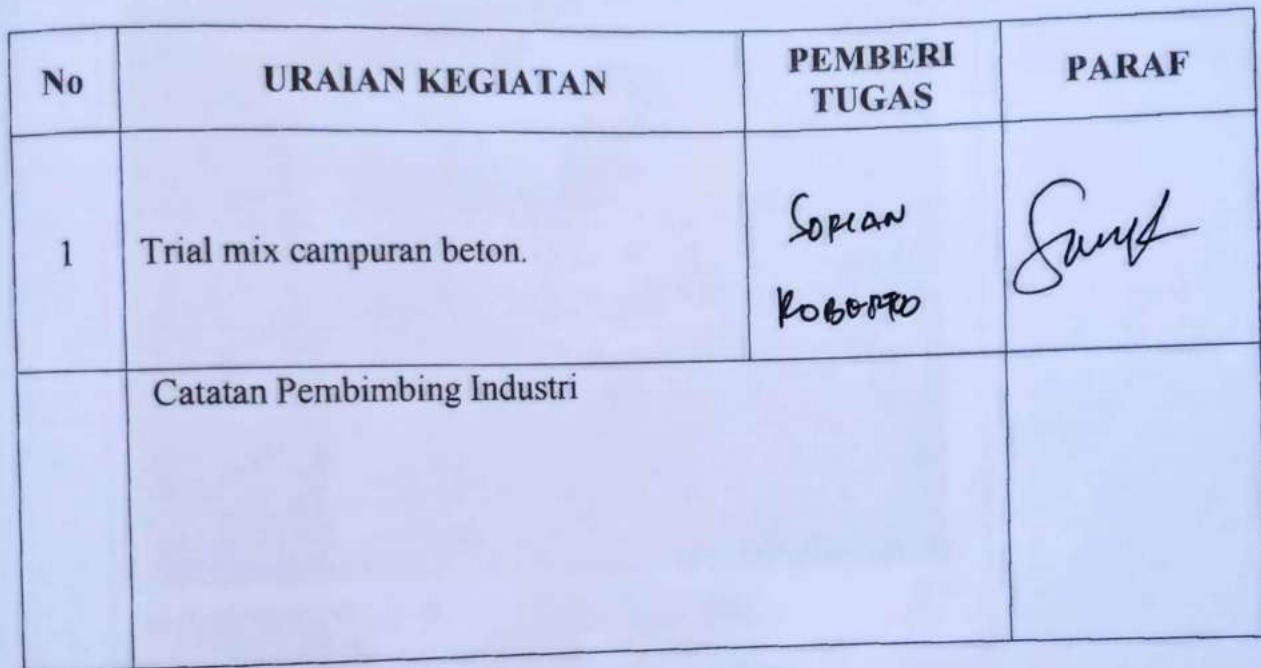 No URAIAN KEGIATAN PEMBERI TUGAS PARAF
1 Trial mix campuran beton. SOPIAN ROBERTO
Catatan Pembimbing Industri